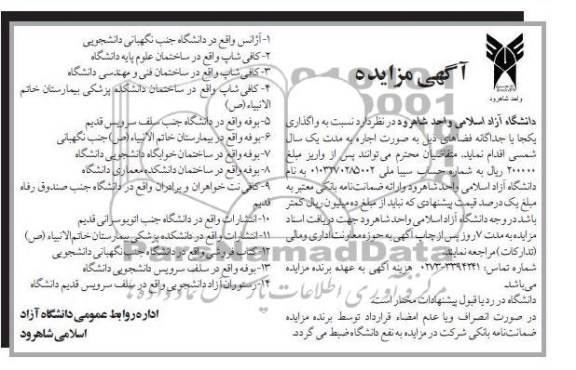 واحد شاهرود
آگهی مزایده
دانشگاه آزاد اسلامی واحد شاهرود در نظر دارد نسبت به واگذاری
یکجا یا جداگانه فضاهای ذیل به صورت اجاره به مدت یک سال
شمسی اقدام نماید. متقاضیان محترم می توانند پس از واریز مبلغ
۲۰۰۰۰۰۰ ریال به شماره حساب سیبا ملی ۰۱۰۳۲۷۰۲۸۵۰۰۲ به نام
دانشگاه آزاد اسلامی واحد شاهرود وارائه ضمانت‌نامه بانکی معتبر به
مبلغ یک درصد قیمت پیشنهادی که نباید از مبلغ ده میلیون ریال کمتر
باشد در وجه دانشگاه آزاد اسلامی واحد شاهرود جهت دریافت اسناد
مزایده به مدت ۷ روز پس از چاپ آگهی به حوزه معاونت اداری و مالی
(تدارکات) مراجعه نمایند.
شماره تماس: ۳۳۹۴۲۴۱-۰۲۷۳ هزینه آگهی به عهده برنده مزایده
می باشد.
دانشگاه در رد یا قبول پیشنهادات مختار است.
در صورت انصراف ویا عدم امضاء قرارداد توسط برنده مزایده
ضمانت‌نامه بانکی شرکت در مزایده به نفع دانشگاه ضبط می گردد.
۱- آژانس واقع در دانشگاه جنب نگهبانی دانشجویی
۲- کافی شاپ واقع در ساختمان علوم پایه دانشگاه
۳- کافی شاپ واقع در ساختمان فنی و مهندسی دانشگاه
۴- کافی شاپ واقع در ساختمان دانشکده پزشکی بیمارستان خاتم
الانبیاء (ص)
۵- بوفه واقع در دانشگاه جنب سلف سرویس قدیم
۶- بوفه واقع در بیمارستان خاتم الانبیاء (ص) جنب نگهبانی
۷- بوفه واقع در ساختمان خوابگاه دانشجویی دانشگاه
۸- بوفه واقع در ساختمان دانشکده معماری دانشگاه
۹- کافی نت خواهران و برادران واقع در دانشگاه جنب صندوق رفاه
قدیم
۱۰- انتشارات واقع در دانشگاه جنب اتوبوسرانی قدیم
۱۱- انتشارات واقع در دانشکده پزشکی بیمارستان خاتم الانبیاء (ص)
۱۲- کتاب فروشی واقع در دانشگاه جنب نگهبانی دانشجویی
۱۳- بوفه واقع در سلف سرویس دانشجویی دانشگاه
۱۴- رستوران آزاد دانشجویی واقع در سلف سرویس قدیم دانشگاه
اداره روابط عمومی دانشگاه آزاد
اسلامی شاهرود
ParsNamadData